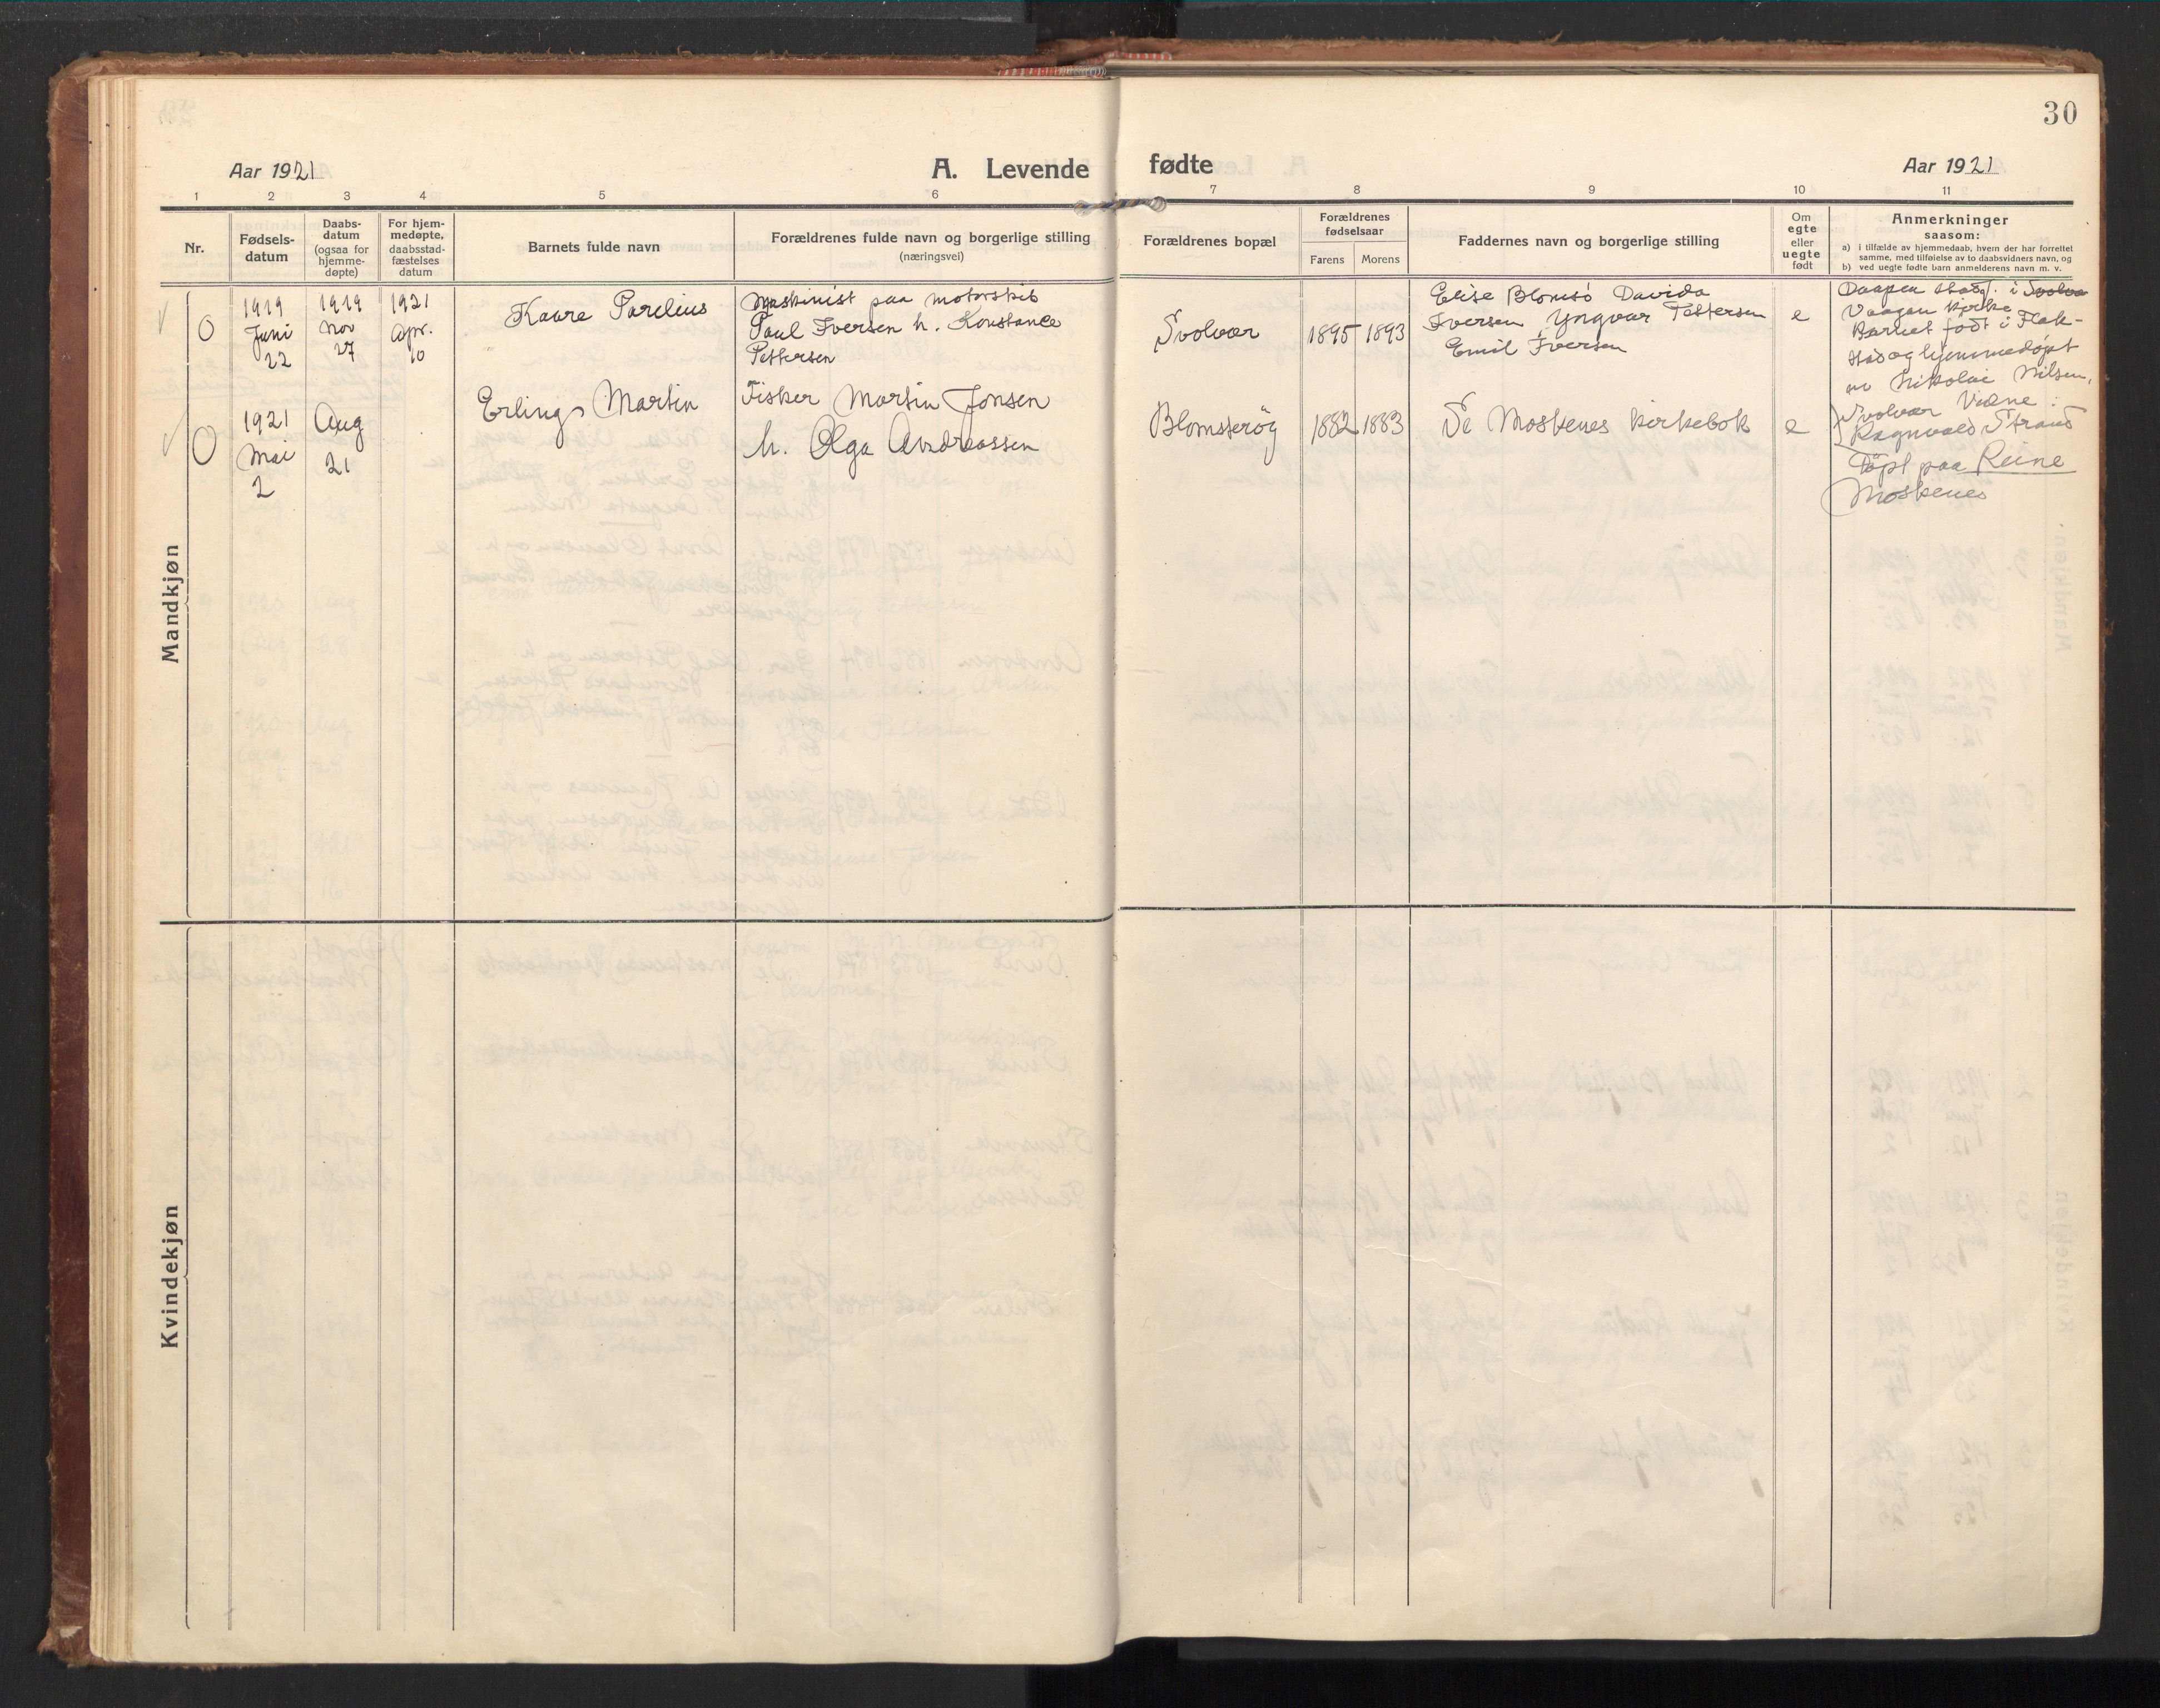 30
Aar 1921
A. Levende fødte
Aar 1921
1 2 3 4 5 6 7 8 9 10 11
Nr.
Fødsels-
datum
Daabs-
datum
(ogsaa for
hjemme-
døpte)
For hjem-
medøpte,
daabsstad-
fæstelses
datum
Barnets fulde navn
Forældrenes fulde navn og borgerlige stilling
(næringsvei)
Forældrenes bopæl
Forældrenes
fødselsaar
Farens Morens
Faddernes navn og borgerlige stilling
Om
egte
eller
uegte
født
Anmerkninger
saasom:
a) i tilfælde av hjemmedaab, hvem der har forrettet
samme, med tilføielse av to daabsvidners navn, og
b) ved uegte fødte barn anmelderens navn m. v.
Mandkjøn
0
1919
Juni
22
1919
Nov
27
1921
Apr.
10
Kaare Parelius
Maskinist paa motorskib
Paul Iversen h. Konstance
Pettersen
Svolvær
1895 1893
Elise Blomsö Davida
Iversen Yngvar Pettersen
Emil Iversen
e
Daapen stadf. i Svolvæ
Vaagan Kirke
Barnet født i Flak-
stad og hjemmedøpt
av Nikolai Nilsen,
Svolvær Vidne:
Ragnvald Strand
0
1921
Mai
2
Aug
21
Erling Martin
Fisker Martin Jonsen
h. Olga Andreassen
Blomsterøy
1882 1883
Se Moskenes kirkebok
e
Døpt paa Reine
Moskenes
Kvindekjøn